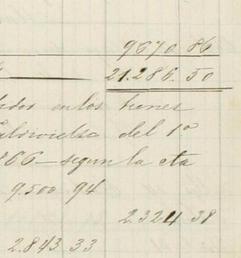 9670.86
21.286.50
en los trenes
del 1º
866 - segun la cta
9.500 94
2.324 38
2.843 33